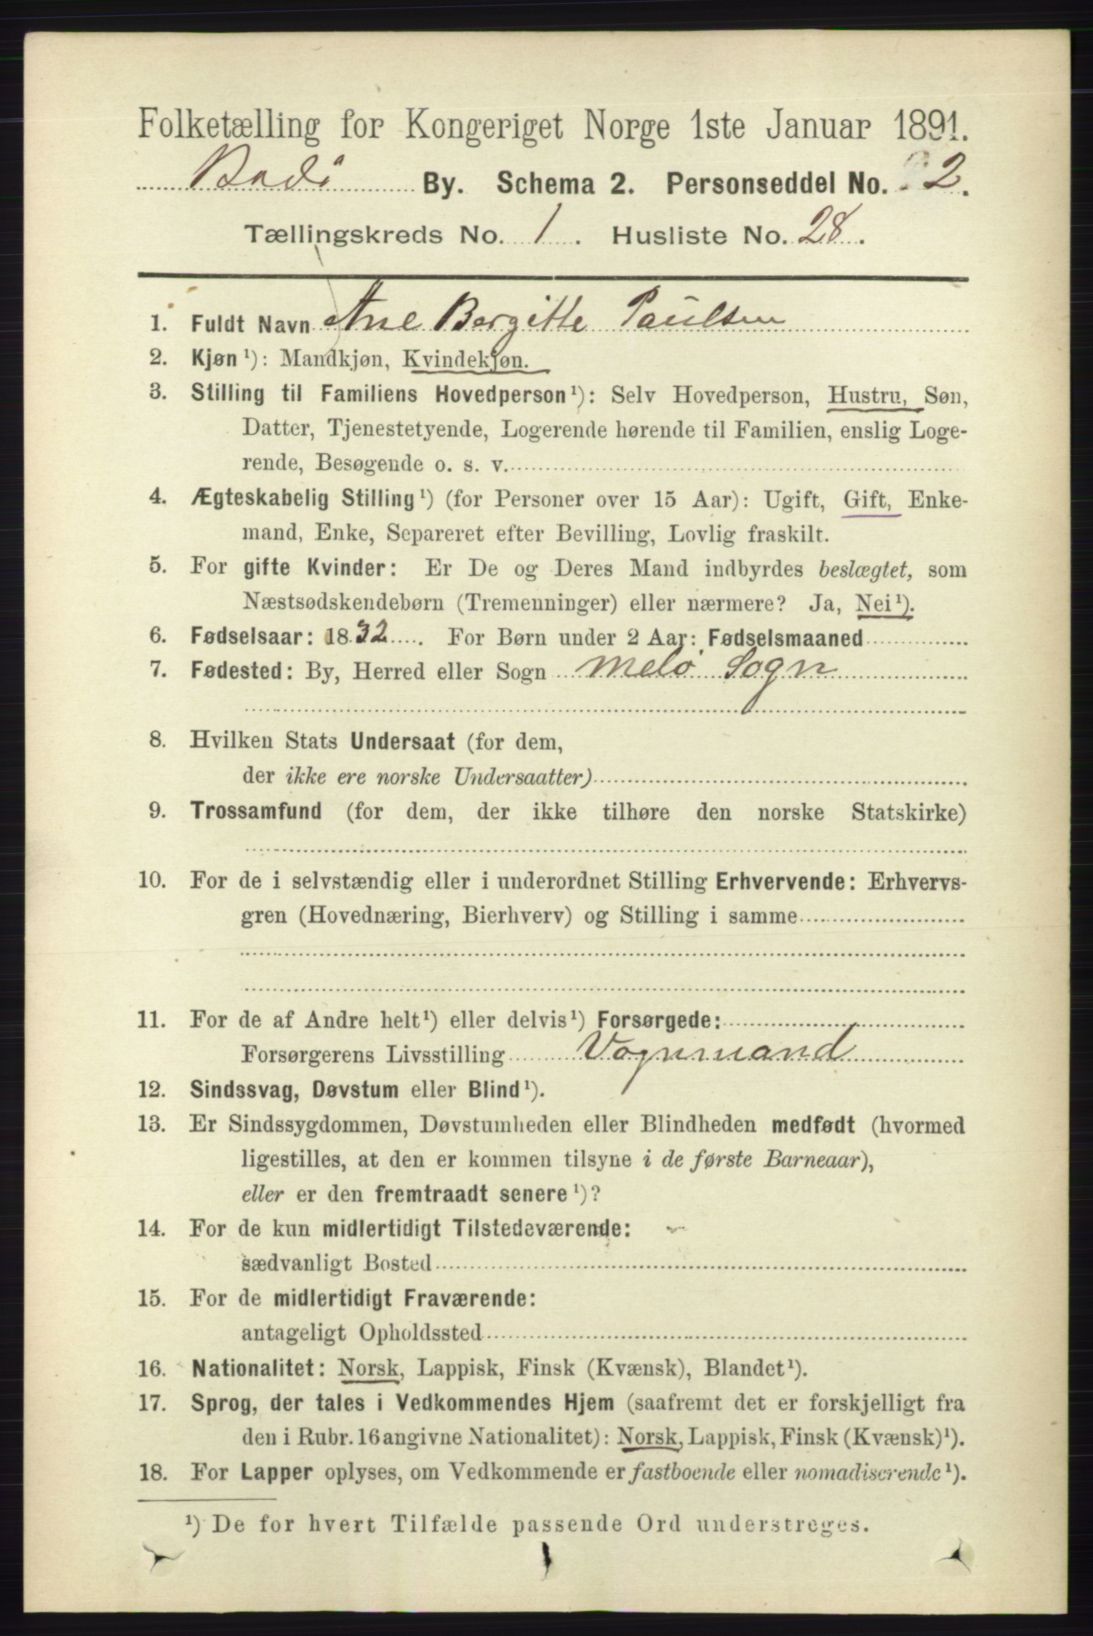 Folketælling for Kongeriget Norge 1ste Januar 1891.
Bodö By. Schema 2. Personseddel No. 2.
Tællingskreds No. 1. Husliste No. 28.
1. Fuldt Navn Ane Bergitte Paulsen
2. Kjøn ¹): Mandkjøn, Kvindekjøn.
3. Stilling til Familiens Hovedperson ¹): Selv Hovedperson, Hustru, Søn,
Datter, Tjenestetyende, Logerende hørende til Familien, enslig Loge-
rende, Besøgende o. s. v.
4. Ægteskabelig Stilling ¹) (for Personer over 15 Aar): Ugift, Gift, Enke-
mand, Enke, Separeret efter Bevilling, Lovlig fraskilt.
5. For gifte Kvinder: Er De og Deres Mand indbyrdes beslægtet, som
Næstsødskendebørn (Tremenninger) eller nærmere? Ja, Nei ¹).
6. Fødselsaar: 1832. For Børn under 2 Aar: Fødselsmaaned
7. Fødested: By, Herred eller Sogn Melö Sogn
8. Hvilken Stats Undersaat (for dem,
der ikke ere norske Undersaatter)
9. Trossamfund (for dem, der ikke tilhøre den norske Statskirke)
10. For de i selvstændig eller i underordnet Stilling Erhvervende: Erhvervs-
gren (Hovednæring, Bierhverv) og Stilling i samme
11. For de af Andre helt ¹) eller delvis ¹) Forsørgede:
Forsørgerens Livsstilling Vognmand
12. Sindssvag, Døvstum eller Blind ¹).
13. Er Sindssygdommen, Døvstumheden eller Blindheden medfødt (hvormed
ligestilles, at den er kommen tilsyne i de første Barneaar),
eller er den fremtraadt senere ¹)?
14. For de kun midlertidigt Tilstedeværende:
sædvanligt Bosted
15. For de midlertidigt Fraværende:
antageligt Opholdssted
16. Nationalitet: Norsk, Lappisk, Finsk (Kvænsk), Blandet ¹).
17. Sprog, der tales i Vedkommendes Hjem (saafremt det er forskjelligt fra
den i Rubr. 16 angivne Nationalitet): Norsk, Lappisk, Finsk (Kvænsk) ¹).
18. For Lapper oplyses, om Vedkommende er fastboende eller nomadiserende ¹).
¹) De for hvert Tilfælde passende Ord understreges.